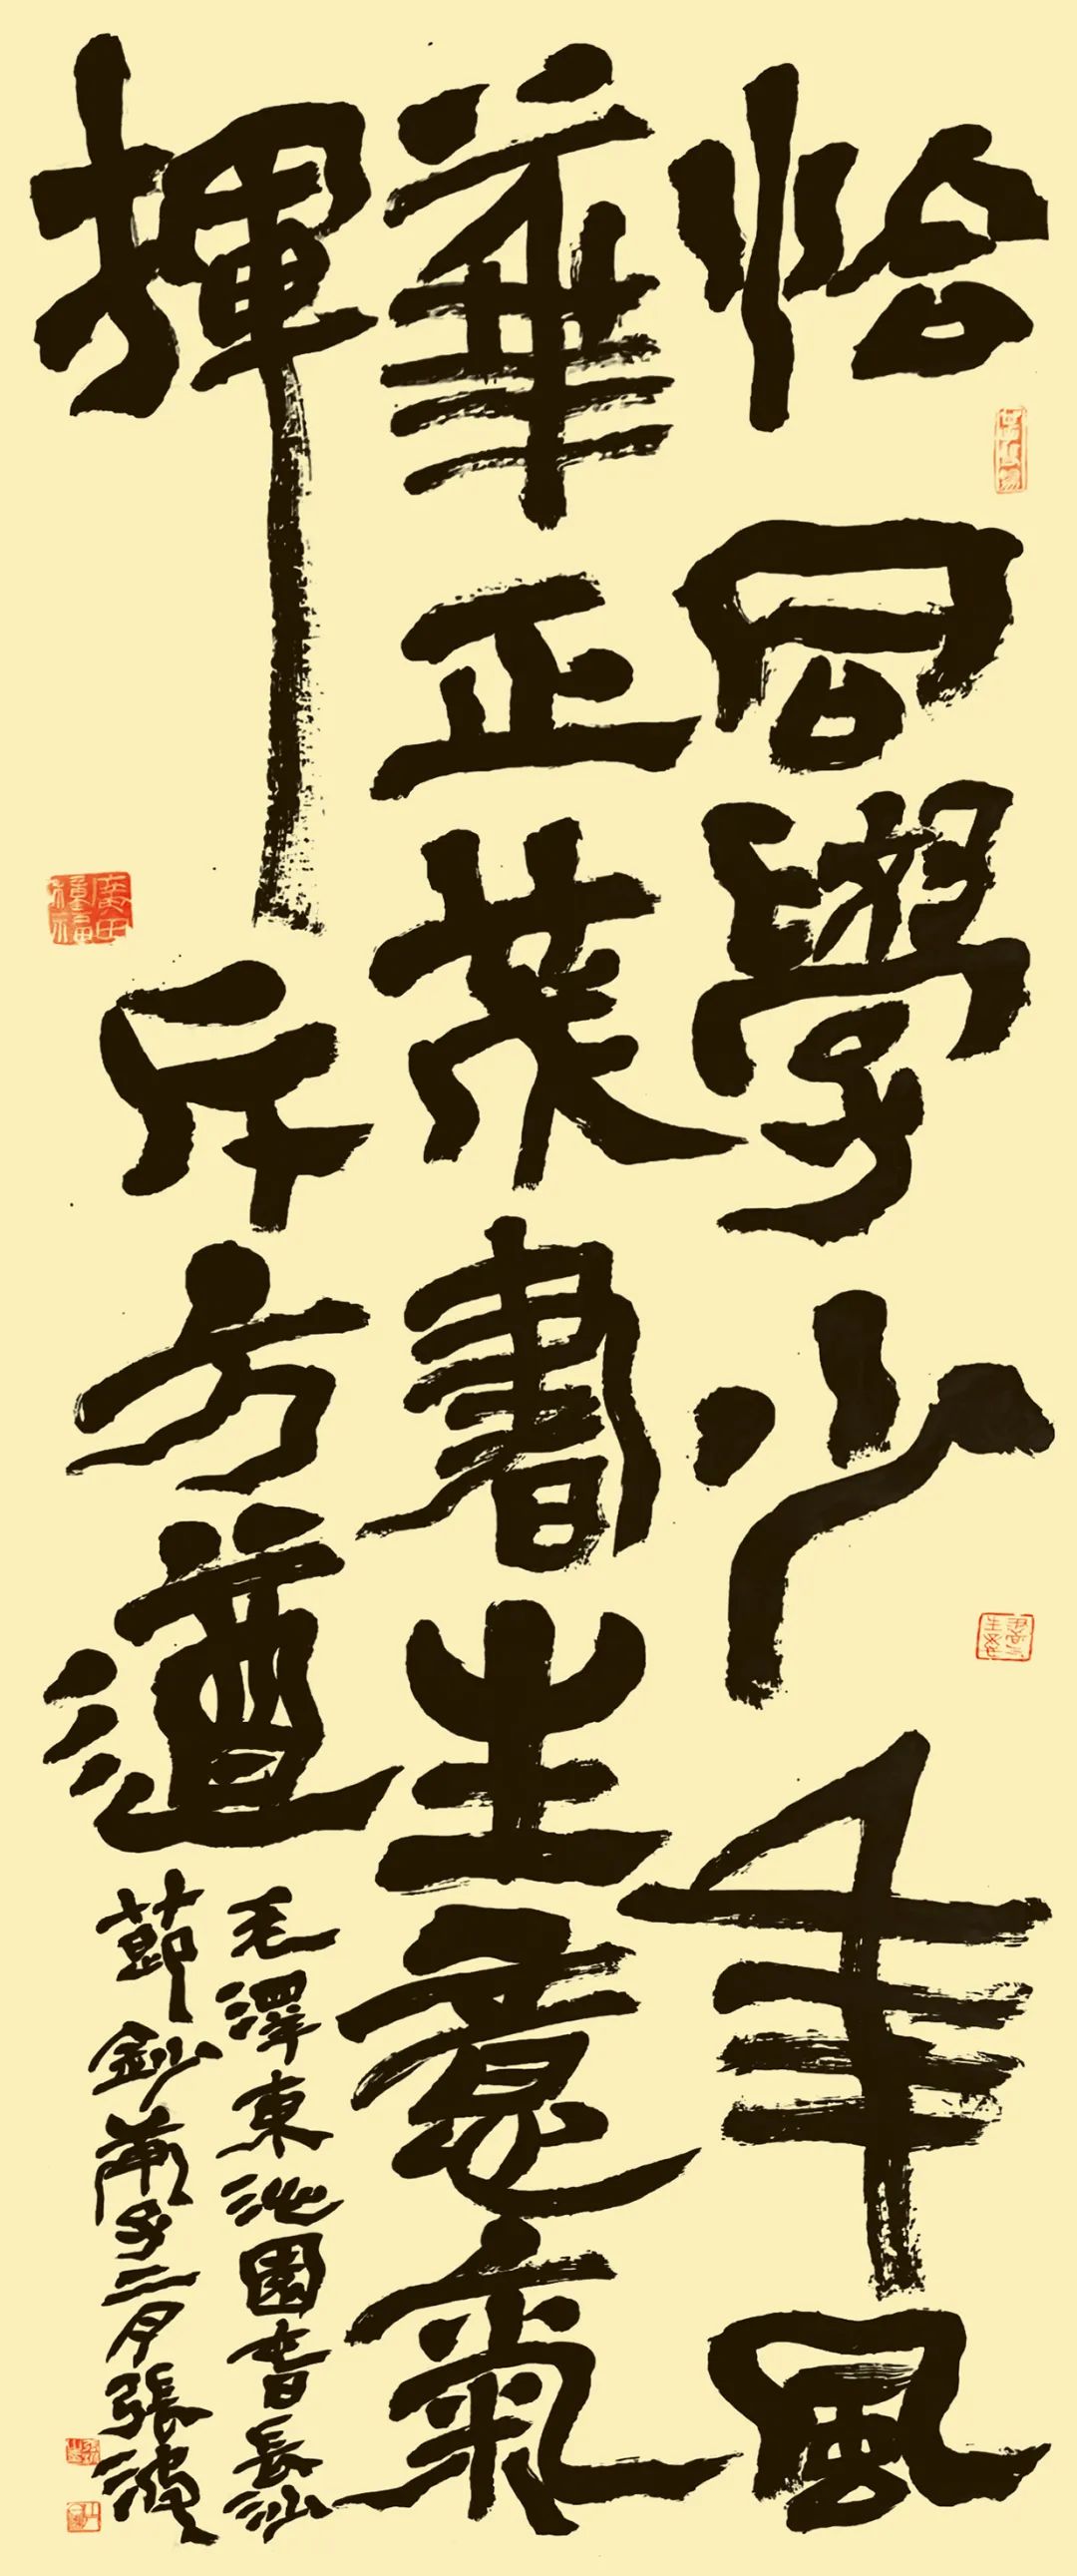 恰同學少年風
華正茂書生意氣
揮斥方遒
毛澤東沁園春長沙
節鈔子二月張